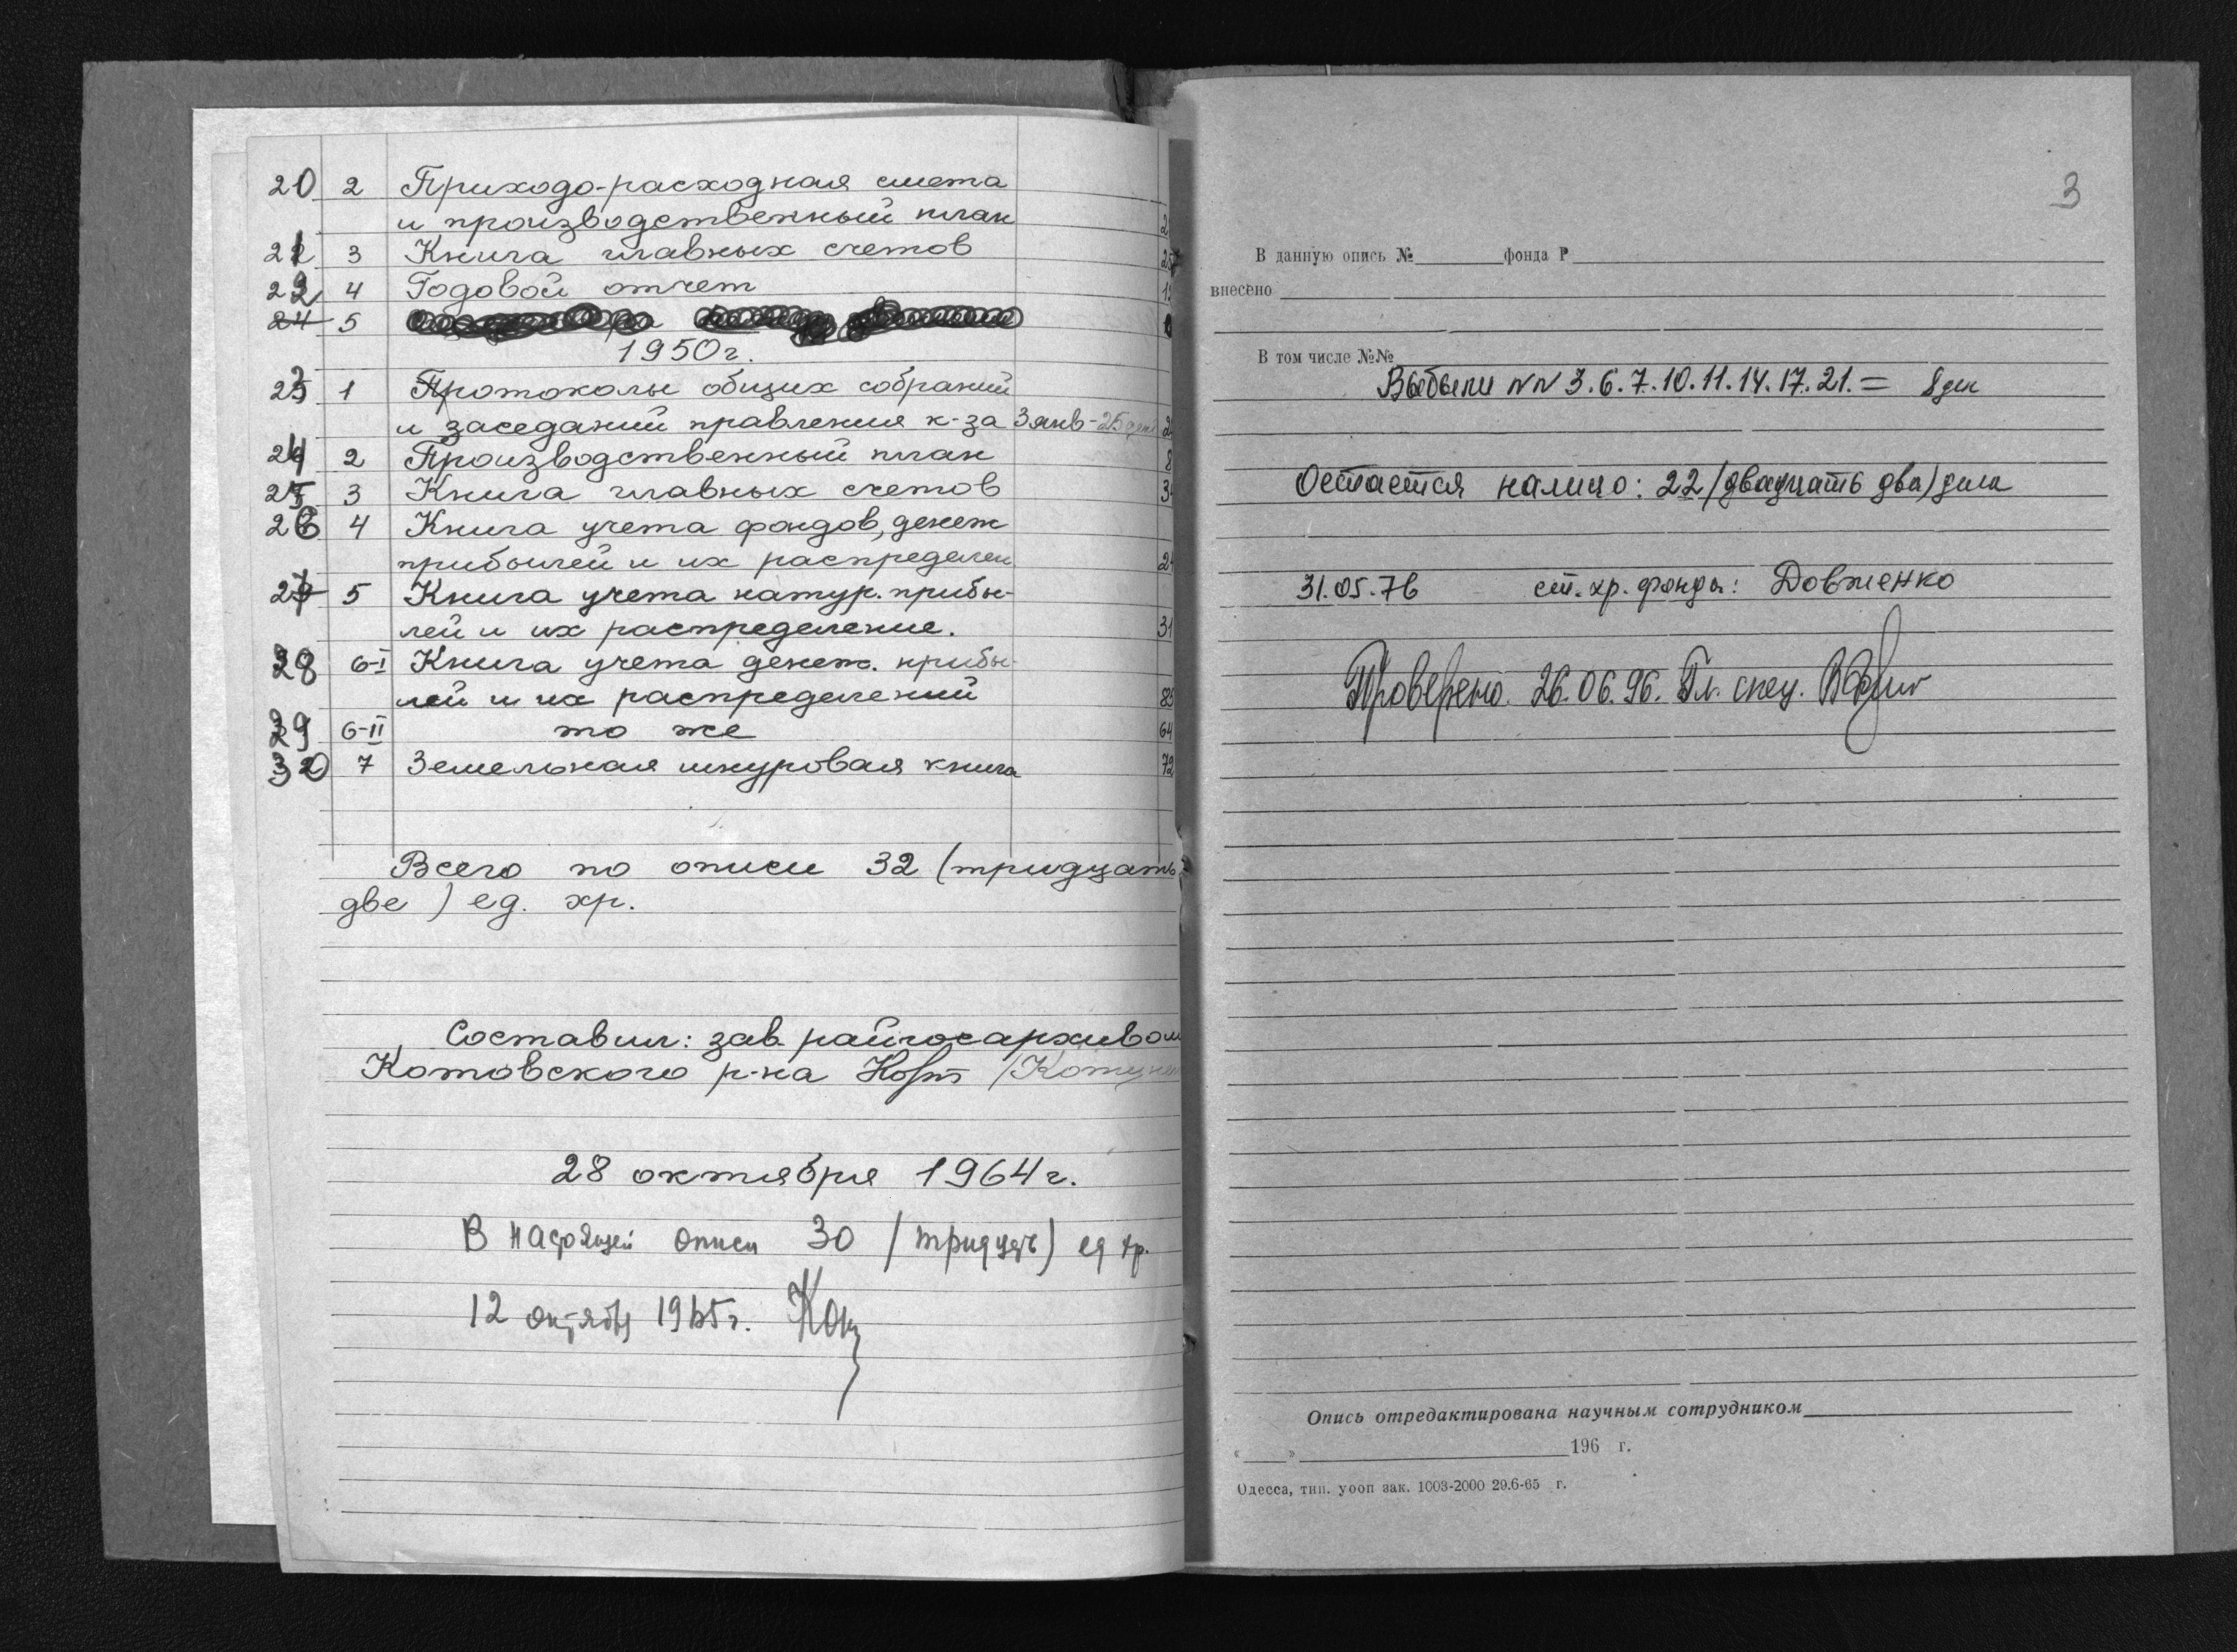 20 2 Приходо-расходная смета
и производственный план 2
21 3 Книга главных счетов 25
22 4 Годовой отчет 12
24 5
1950г.
23 1 Протоколы общих собраний
и заседаний правления к-за 3 янв-25 дек 2
24 2 Производственный план 8
25 3 Книга главных счетов 3
26 4 Книга учета фондов, денеж
прибылей и их распределен 2
27 5 Книга учета натур. прибы-
лей и их распределение. 31
28 6-I Книга учета денеж. прибы-
лей и их распределений 8
29 6-II то же 64
30 7 Земельная шнуровая книга 72
Всего по описи 32 (тридцать
две) ед. хр.
Составил: зав. райгосархивом
Котовского р-на
28 октября 1964г.
В настоящей описи 30 (тридцать) ед хр.
12 октября 1965г.
3
В данную опись № фонда Р
внесено
В том числе №№
Выбыли NN 3.6.7.10.11.14.17.21.= 8 дел
Остается налицо: 22 (двадцать два) дела
31.05.76 ст. хр. фонда: Довженко
Проверено. 26.06.96. Гл. спец.
Опись отредактирована научным сотрудником
« » 196 г.
Одесса, тип. уооп зак. 1003-2000 29.6-65 г.